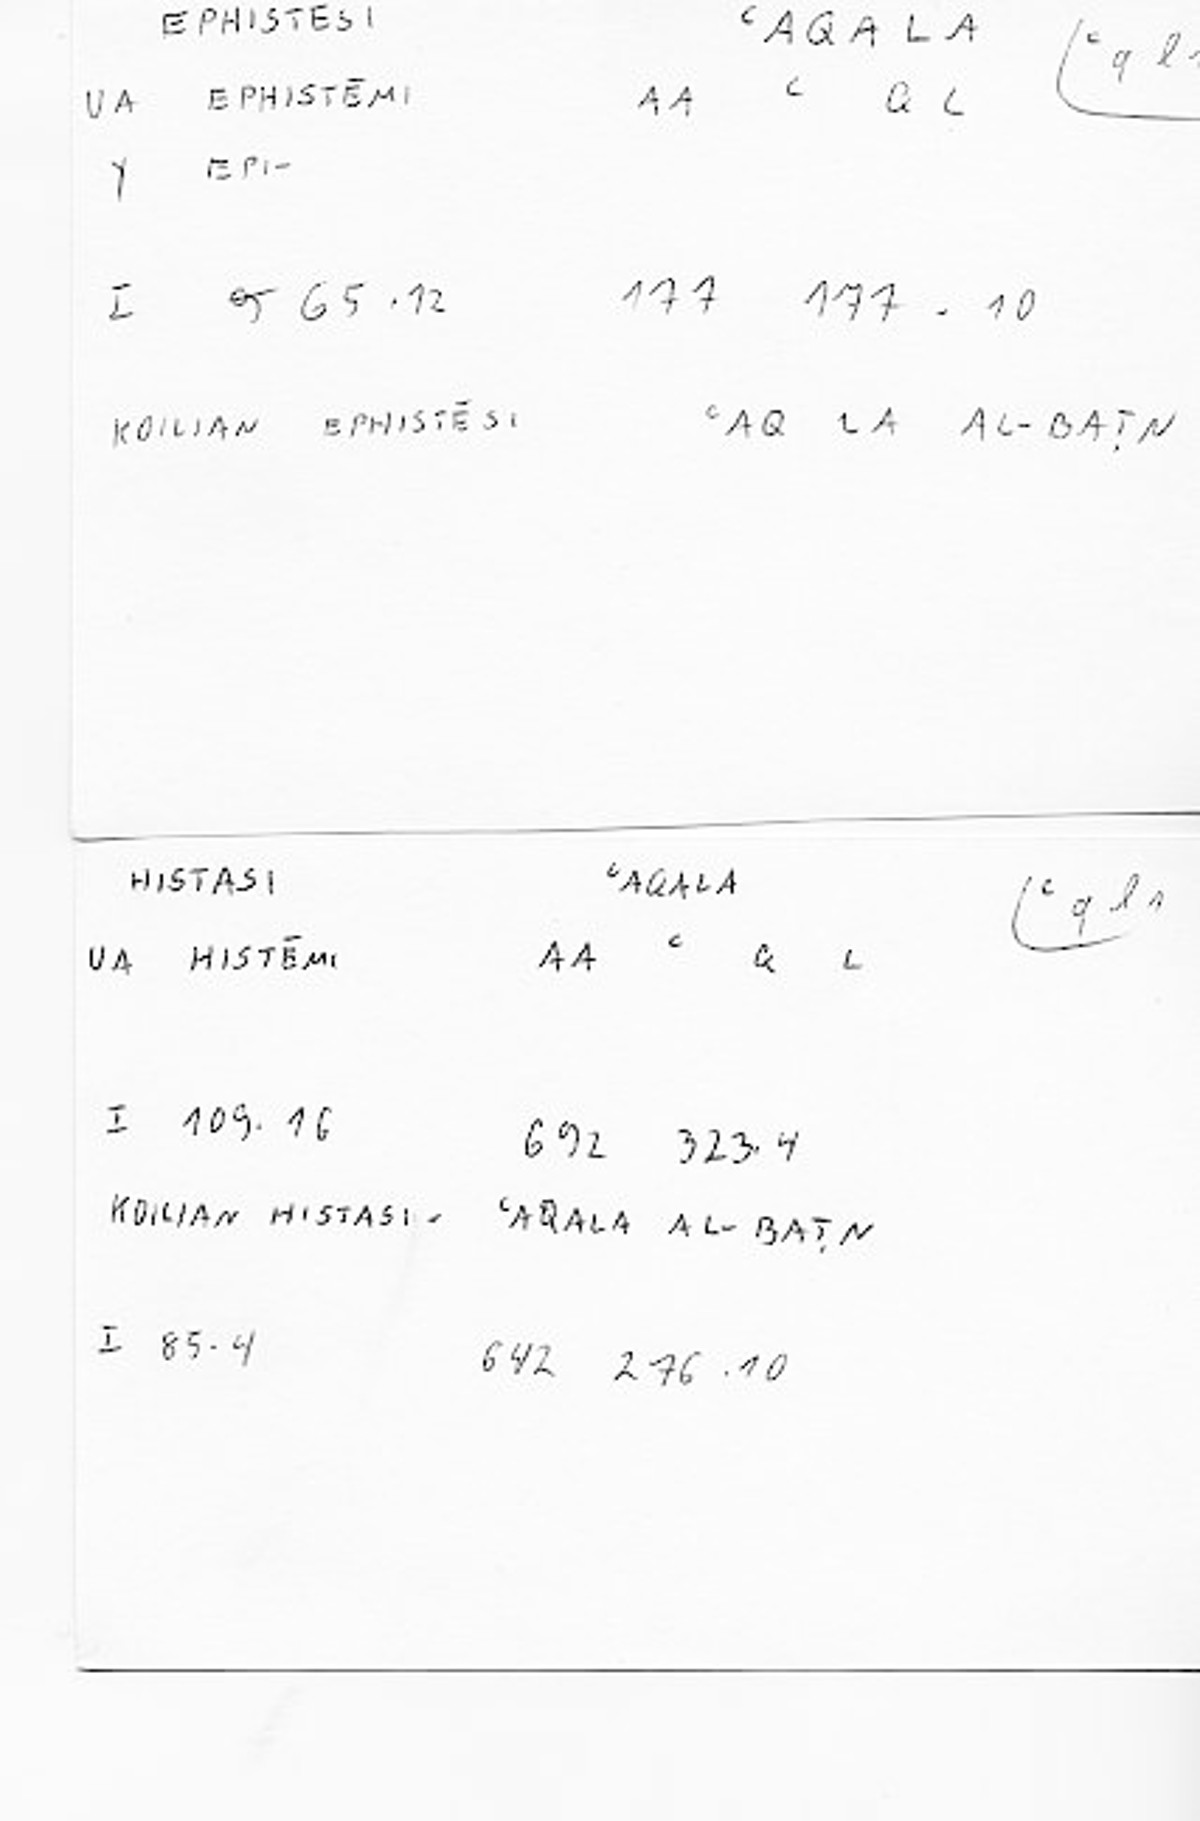 EPHISTESI ʿAQALA ʿql1
UA EPHISTĒMI AA ʿ Q L
Y EPI-
I 65.12 177 177.10
KOILIAN EPHISTĒSI ʿAQ LA AL-BAṬN
HISTASI ʿAQALA ʿql1
UA HISTĒMI AA ʿ Q L
I 109.16 692 323.4
KOILIAN HISTASI- ʿAQALA AL-BAṬN
I 85.4 642 276.10